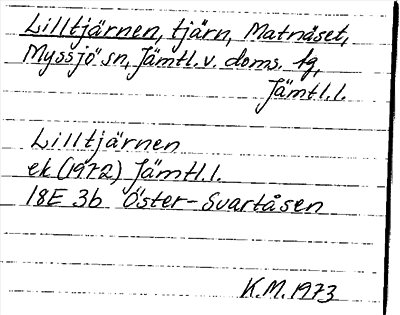 Lilltjärnen, tjärn, Matnäset,
Myssjö sn, Jämtl.v. doms. fg,
Jämtl.l.
Lilltjärnen
ek (1972) Jämtl.l.
18E 3b Öster-Svartåsen
K.M. 1973